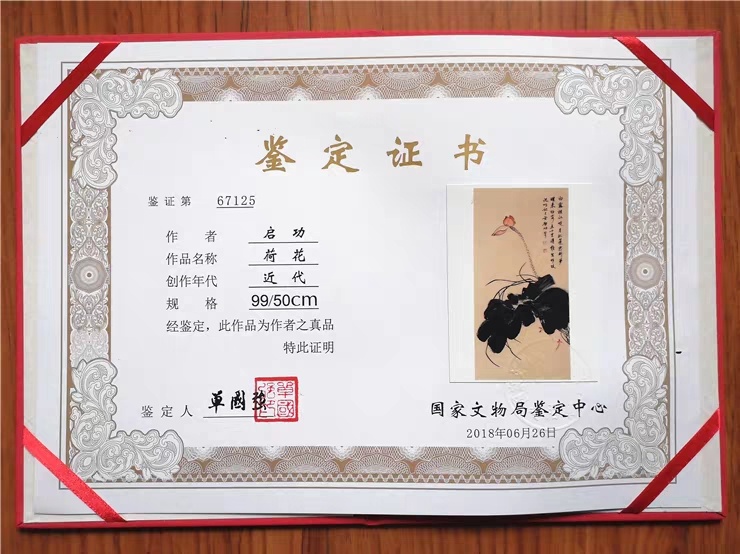 鉴定证书
鉴证第 67125
作者 启功
作品名称 荷花
创作年代 近代
规格 99/50cm
经鉴定，此作品为作者之真品
特此证明
鉴定人 單國强
國家文物局鉴定中心
2018年06月26日